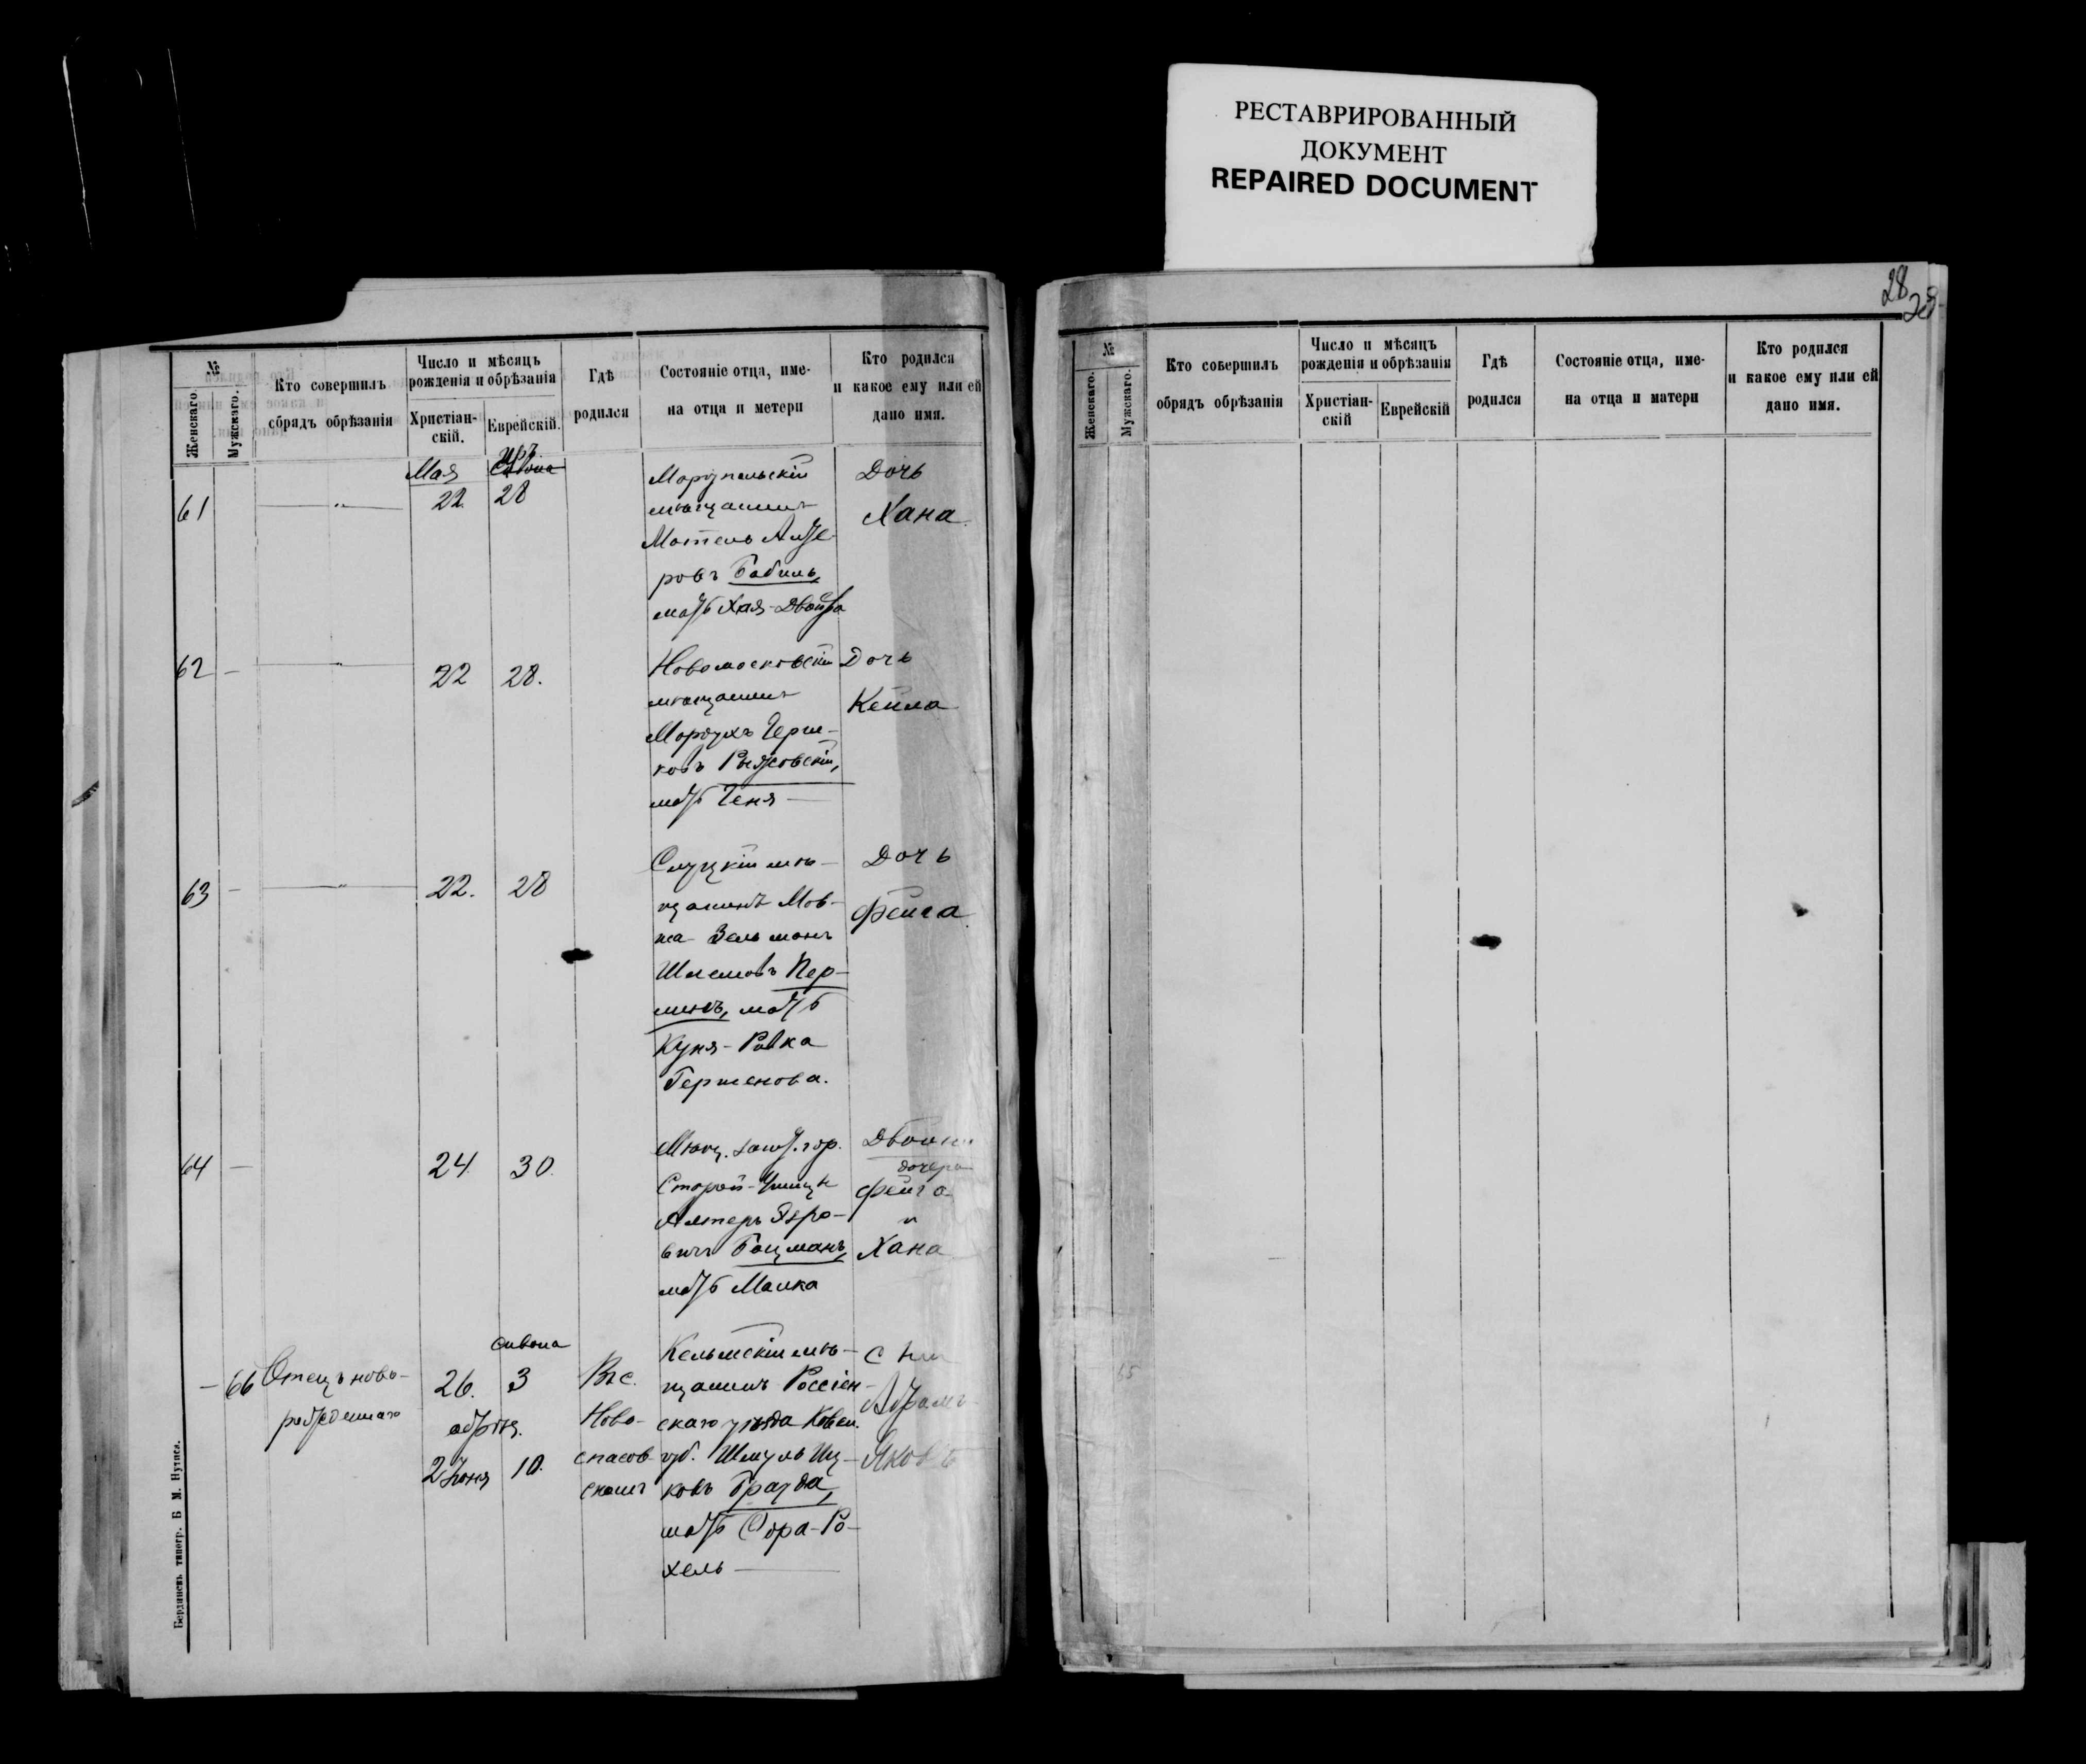 РЕСТАВРИРОВАННЫЙ
ДОКУМЕНТ
REPAIRED DOCUMENT
№
Женскаго.
Мужскаго.
Кто совершилъ
обрядъ обрѣзанія
Число и мѣсяцъ
рожденія и обрѣзанія
Христіан-
скій.
Еврейскій.
Гдѣ
родился
Состояніе отца, име-
на отца и метери
Кто родился
и какое ему или ей
дано имя.
61
Мая
22
28
мѣщанинъ
Мотель
ровъ Бабиль,
мать Хая-Двойра
Дочь
Хана
62 —
22 28.
Новомосковскій
мѣщанинъ
Мордухъ Герш-
ковъ
мать Геня —
Дочь
Кейла
63 —
22. 28
Слуцкій мѣ-
щанинъ Мов-
ша-Зельманъ
Шлемовъ Пер-
мать
Куня-Ривка
Гершенова.
Дочь
Фейга
64 —
24 30.
Мѣщ. гор.
Старой-Ушицы
Алтеръ
вичъ Боцманъ,
мать Малка
Двойни
дочери
Фейга
и
Хана
— 66
Отецъ ново-
рожденнаго
Сивана
26. 3
обрѣз.
2 Іюня 10.
Въ с.
Ново-
спасов-
скомъ
Кельмскій мѣ-
щанинъ Россіен-
скаго уѣзда Ковен.
губ. Шмуль Иц-
ковъ Бразда,
мать Сора-Ро-
хель —
Сынъ
Абрамъ-
Яковъ
Бердянскъ типогр. Б М. Нутиса.
28
№
Женскаго.
Мужскаго.
Кто совершилъ
обрядъ обрѣзанія
Число и мѣсяцъ
рожденія и обрѣзанія
Христіан-
скій
Еврейскій
Гдѣ
родился
Состояніе отца, име-
на отца и матери
Кто родился
и какое ему или ей
дано имя.
65